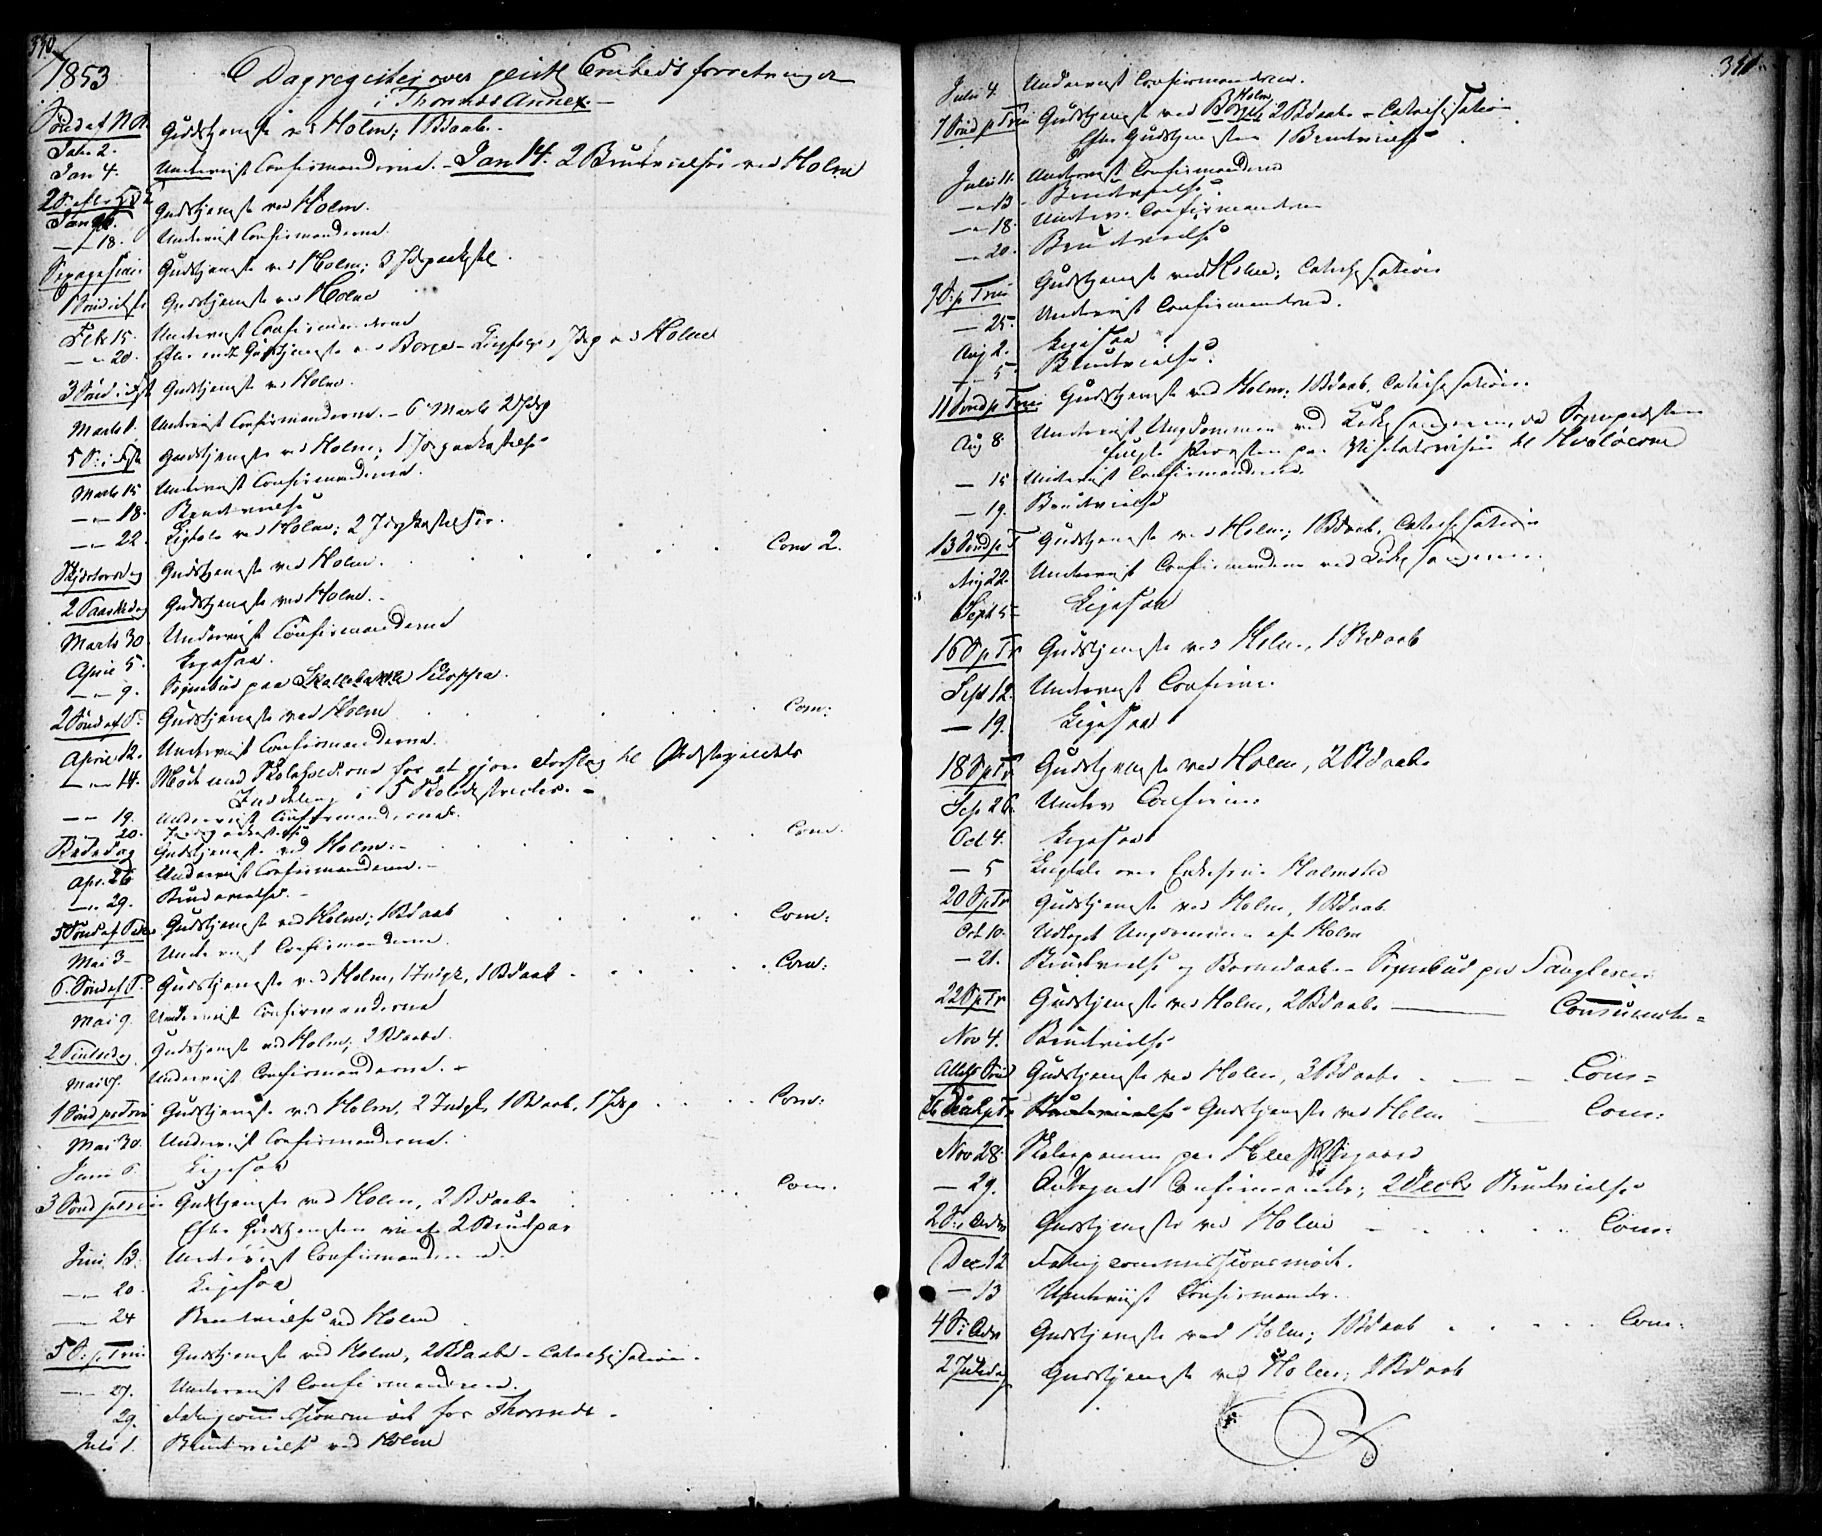 340.
1853
Dagregister over geistl Embedsforretninger
i Thorsnes Annex.
Sönd af N A.
Jan. 2. Gudstjeneste ved Holm; 1 Bdaab.
Jan 4. Underviist Confirmanderne. - Jan 14. 2 Brudvielser ved Holm
2 S. eft.
Jan 16. Gudstjeneste ved Holm.
— 18. Underviist Confirmanderne.
Gudstjeneste ved Holm; 3
Gudstjeneste ved Holm
Feb 15. Underviist Confirmanderne
— 20. Efter endt Gudstjeneste ved Borge ved Holm
3 Sönd i Fast Gudstjeneste ved Holm.
Marts 1. Underviist Confirmanderne. - 6 Marts 2 Jdp
5 S. i Fast Gudstjeneste ved Holm; 1 Jordpaakastelse
Marts 15 Underviist Confirmanderne.
— 18. Brudvielse
— 22. Ligtale ved Holm; 2
Skjertorsdag Gudstjeneste ved Holm. Com 2.
2 Paaskedag Gudstjeneste ved Holm.
Marts 30. Underviist Confirmanderne
April 5. Ligesaa.
— 9. Sognebud paa
2 Sönd ef P. Gudstjeneste ved Holm Com:
April 12. Underviist Confirmanderne.
— 14. Möde med Skoleholderne for at gjöre Forslag til
Inddeling i 5 Skoledistricter.
— 19. Underviist Confirmanderne.
20. Jordpaakastelse
Bededag Gudstjeneste ved Holm. Com.
Apr. 26 Underviist Confirmanderne.
— 29. Brudevielse.
5 Sönd ef Paaske Gudstjeneste ved Holm; 1 Bdaab Com:
Mai 3 Underviist Confirmanderne.
6. Sönd ef P. Gudstjeneste ved Holm, 1 Indgk, 1 Bdaab Com:
Mai 9. Underviist Confirmanderne
2 Pintsedag Gudstjeneste ved Holm; 2 Bdaabe.
Mai 17. Underviist Confirmanderne.
1 Sönd p Trin Gudstjeneste ved Holm, 2 Indgk, 1 Bdaab, 1 Jdp Com:
Mai 30. Underviist Confirmanderne.
Juni 6. Ligesaa
3 Sönd p Trin Gudstjeneste ved Holm, 2 Bdaabe Com.
Efter Gudstjenesten viet 2 Brudpar
Juni 13. Underviist Confirmanderne.
— 20. Ligesaa
— 24 Brudvielse ved Holm
5 S. p. Trin Gudstjeneste ved Holm, 2 Bdaabe - Catechisation.
— 27. Underviist Confirmanderne.
29. Fattigcommissionsmöde for Thorsnes.
Juli 1. Brudvielse ved Holm
341.
Juli 4. Underviist Confirmanderne.
Holm
7 Sönd p Trin Gudstjeneste ved Borge, 2 Bdaabe - Catechisation
Efter Gudstjenesten 1 Brudvielse
Juli 11. Underviist Confirmanderne
— 13. Brudvielse.
— 18. Underv. Confirmanderne
— 20. Brudvielse
9 S. p Trin Gudstjeneste ved Holm; Catechisation
— 25. Underviist Confirmanderne.
Aug 2. Ligesaa
— 5 Brudvielse.
11 Sönd p Trin Gudstjeneste ved Holm; 1 Bdaab, Catechisation.
Aug 8. Underviist Ungdommen ved Kirkesangeren, da Sognepresten
fulgte Provsten paa Visitatsreisen til Hvalöerne
— 15 Underviist Confirmanderne
— 19. Brudvielse
13 Sönd p. T Gudstjeneste ved Holm; 1 Bdaab, Catechisation
Aug 22. Underviist Confirmanderne ved Kirkesangeren.
Sept 5 Ligesaa
16 S p Tr Gudstjeneste ved Holm, 1 Bdaab
Sept 12. Underviist Confirm.
— 19. Ligesaa
18 S p Tr Gudstjeneste ved Holm, 2 Bdaabe
Sep 26. Underv Confirm
Oct 4. Ligesaa
— 5 Ligtale over Enkefru Holmsted
20 S p Tr Gudstjeneste ved Holm, 1 Bdaab
Oct 10. Udtaget Ungdommen af Holm
— 21. Brudvielse og Barnedaab - Sognebud paa
22 S p Tr Gudstjeneste ved Holm, 2 Bdaabe — Communion
Nov 4. Brudvielse
Alleh Sönd Gudstjeneste ved Holm, 3 Bdaabe Com
Brudvielse Gudstjeneste ved Holm Com:
Nov 28. Skoleexamen paa Holm
— 29. Antegnet Confirmander; 2 Decbr Brudvielse
2 S. i Adv Gudstjeneste ved Holm Com:
Dec 12 Fattigcommissionsmöde.
— 13 Underviist Confirmander.
4 S. i Adv Gudstjeneste ved Holm; 1 Bdaab Com:
2 Juledag Gudstjeneste ved Holm; 1 Bdaab